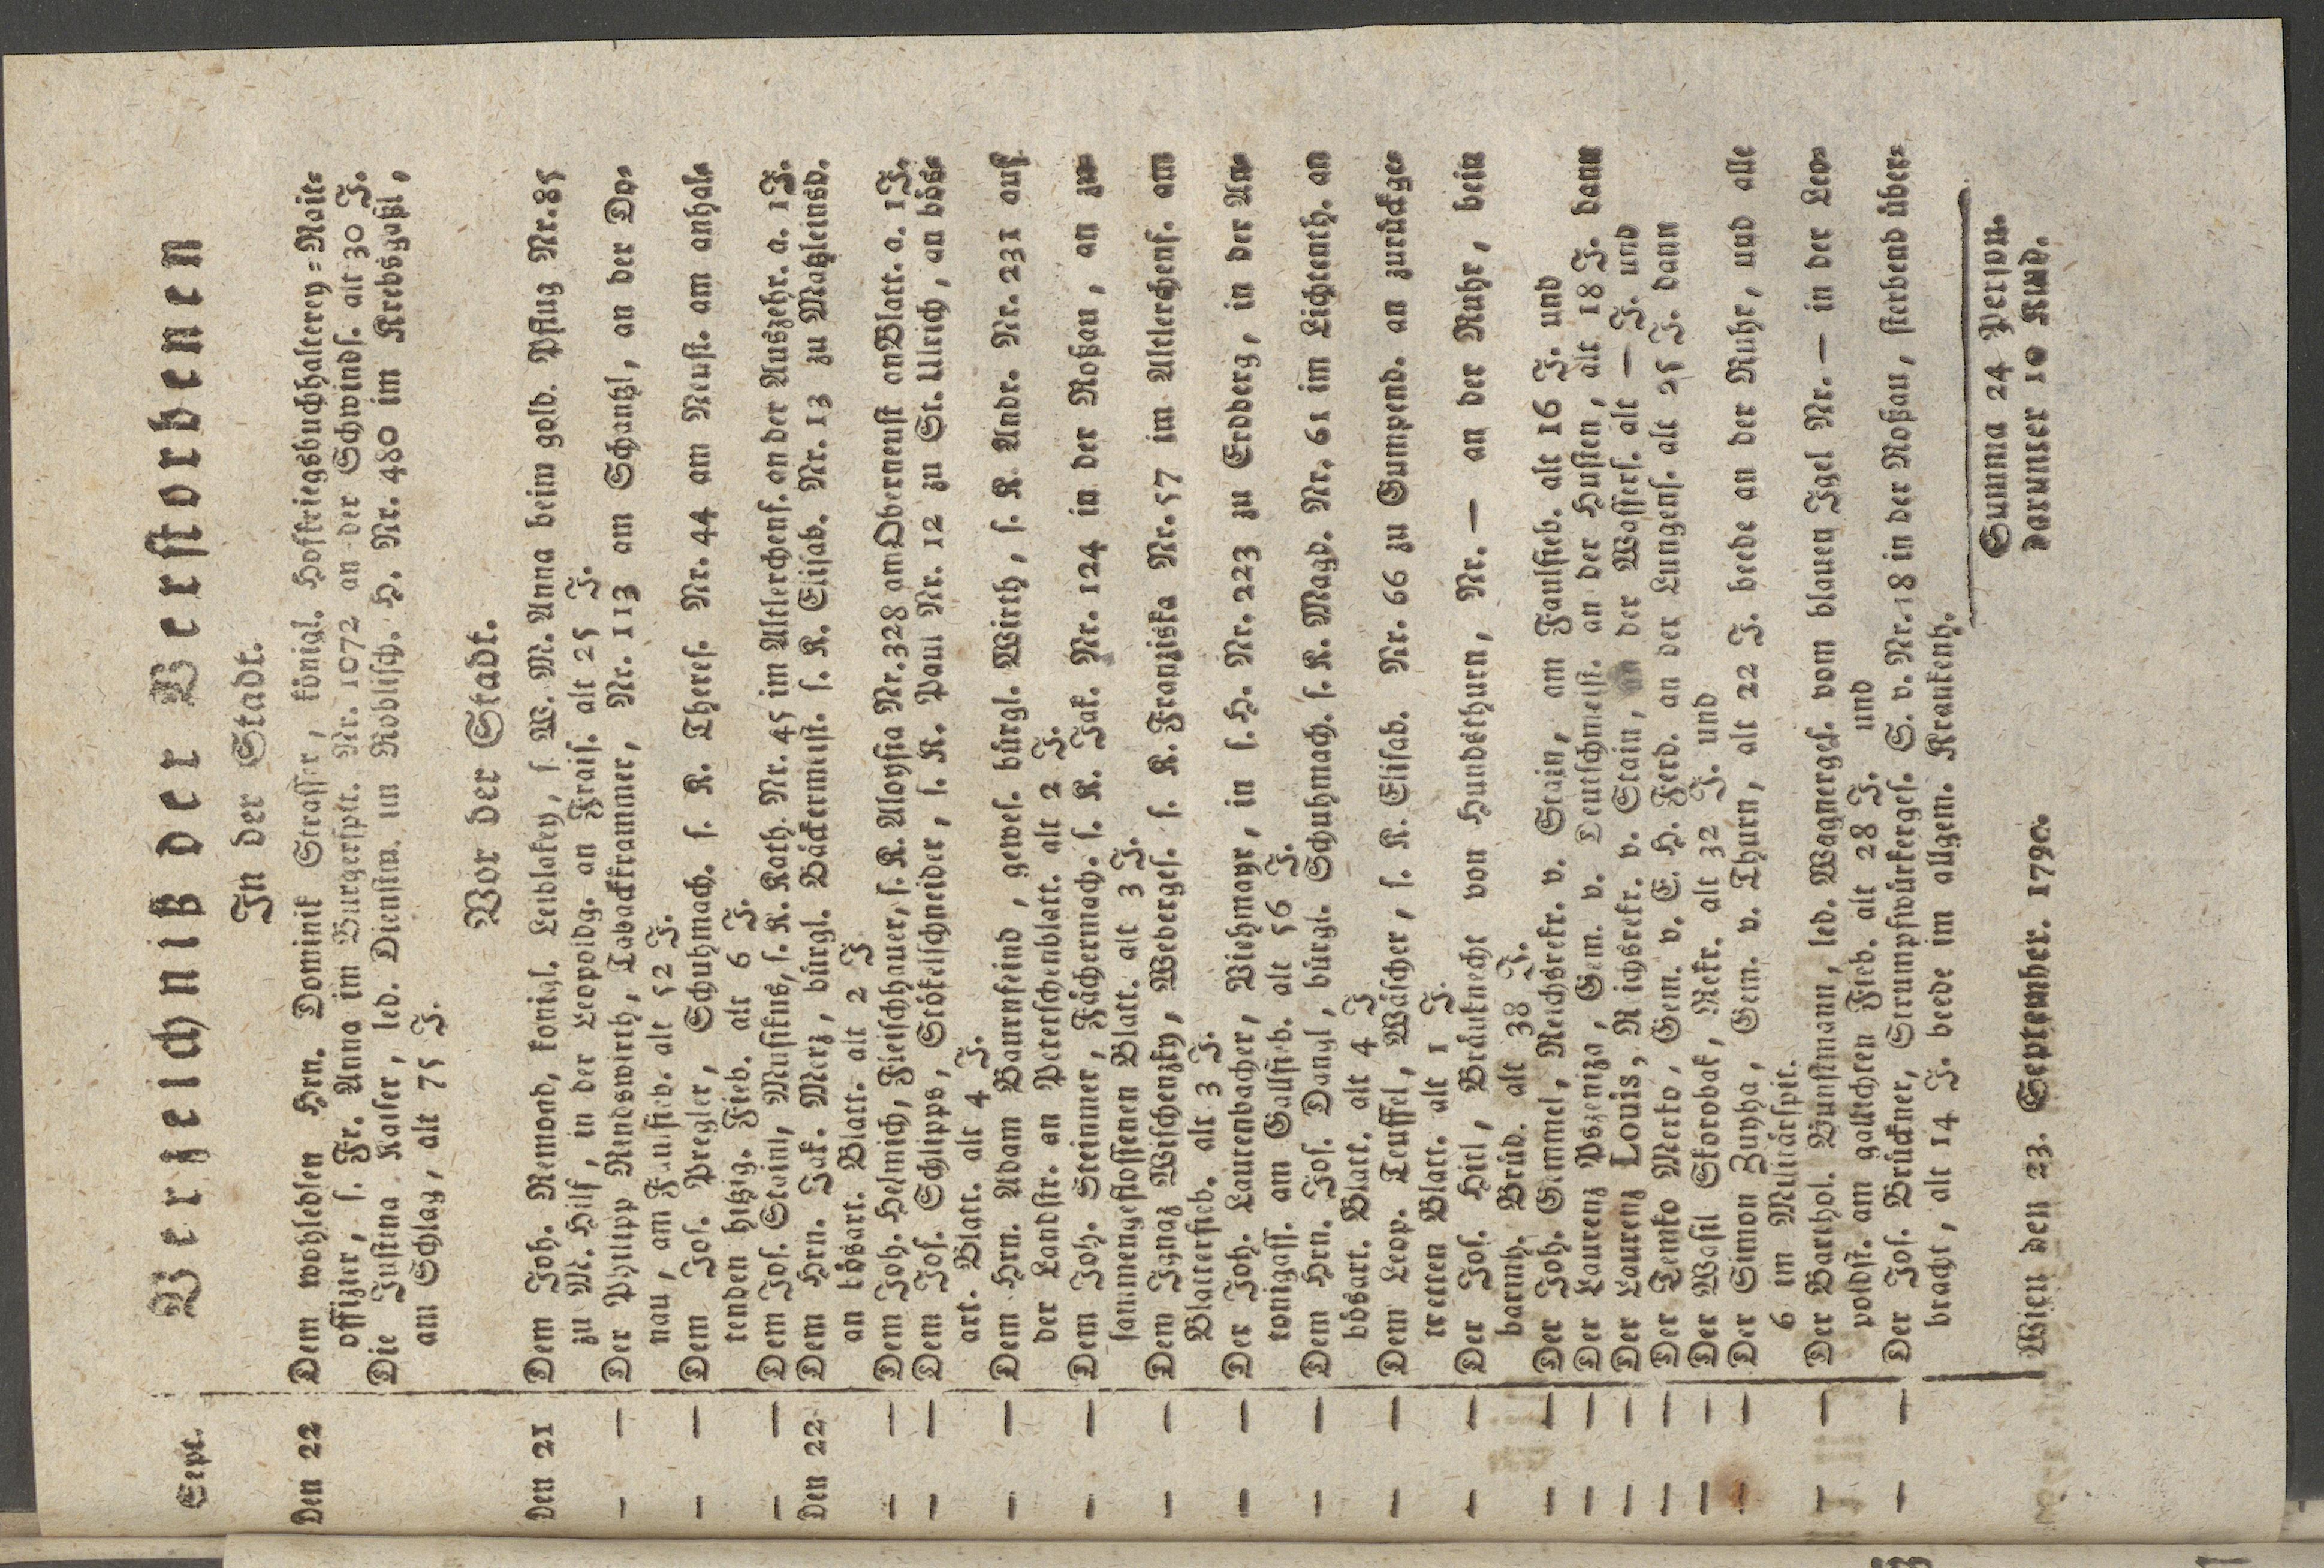 Sept.
Verzeichniß der Verstorbenen
In der Stadt.
Den 22 Dem wohledlen Hrn. Dominik Strasser, königl. Hofkriegsbuchhalterey=Rait=
offizier, s. Fr. Anna im Burgerspit. Nr. 1072 an der Schwinds. alt 30 J.
Die Justina Kaiser, led. Dienstm. im Koblisch. H. Nr. 480 im Krebsgaßl,
am Schlag, alt 75 J.
Vor der Stadt.
Den 21 Dem Joh. Remond, königl. Leiblakey, s. W. M. Anna beim gold. Pflug Nr. 85
zu M. Hilf, in der Leopoldg. an Frais. alt 25 J.
— — Der Philipp Rindswirth, Tabackkrammer, Nr. 113 am Schantzl, an der Do=
nau, am Faulfieb. alt 52 J.
— — Dem Jos. Pregler, Schuhmach. s. K. Theres. Nr. 44 am Neust. am anhal=
tenden hitzig. Fieb. alt 6 J.
— — Dem Jos. Stainl, Musikus, s. K. Kath. Nr. 45 im Altlerchenf. an der Auszehr. a. 1 J.
Den 22 Dem Hrn. Jak. Merz, bürgl. Bäckermist. s. K. Elisab. Nr. 13 zu Matzleinsd.
an bösart. Blatt. alt 2 J
— — Dem Joh. Helmich, Fleischhauer, s. K. Aloysia Nr. 328 am Oberneust an Blatt. a. 1 J.
— — Dem Jos. Schlipps, Stökelschneider, s. K. Paul Nr. 12 zu St. Ulrich, an bös=
art. Blatt. alt 4 J.
— — Dem Hrn. Adam Baurnfeind, gewes. bürgl. Wirth, s. K. Andr. Nr. 231 auf
der Landstr. an Peterschenblatt. alt 2 J.
— — Dem Joh. Steinner, Fächermach. s. K. Jak. Nr. 124 in der Roßau, an zu=
sammengeflossenen Blatt. alt 3 J.
— — Dem Ignaz Wischenzky, Weberges. s. K. Franziska Nr. 57 im Altlerchenf. am
Blatterfieb. alt 3 J.
— — Der Joh. Laurenbacher, Viehmayr, in s. H. Nr. 223 zu Erdberg, in der An=
tonigass. am Gallfieb. alt 56 J.
— — Dem Hrn. Jos. Dangl, bürgl. Schuhmach. s. K. Magd. Nr. 61 im Lichtenth. an
bösart. Blatt. alt 4 J
— — Dem Leop. Teuffel, Wäscher, s. K. Elisab. Nr. 66 zu Gumpend. an zurückge=
tretten Blatt. alt 1 J.
— — Der Jos. Hitl, Bräuknecht von Hundsthurn, Nr. — an der Ruhr, bein
barmh. Brüd. alt 38 J.
— — Der Joh. Gemmel, Reichsrekr. v. Stain, am Faulfieb. alt 16 J. und
— — Der Laurenz Pszeniza, Gem. v. Deutschmeist. an der Husten, alt 18 J. dann
— — Der Laurenz Louis, Reichsrekr. v. Stain, an der Wassers. alt — J. und
— — Der Temko Merto, Gem. v. E. H. Ferd. an der Lungens. alt 25 J. dann
— — Der Wasil Skorobak, Rekr. alt 32 J. und
— — Der Simon Zuyha, Gem. v. Thurn, alt 22 J. beede an der Ruhr, und alle
6 im Militärspit.
— — Der Barthol. Bunstmann, led. Wagnerges. vom blauen Igel Nr. — in der Leo=
poldst. am gallichten Fieb. alt 28 J. und
— — Der Jos. Brückner, Strumpfwürkerges. S. v. Nr. 18 in der Roßau, sterbend über=
bracht, alt 14 J. beede im allgem. Krankenh.
Summa 24 Person.
darunter 10 Kind.
Wien den 23. September. 1790.